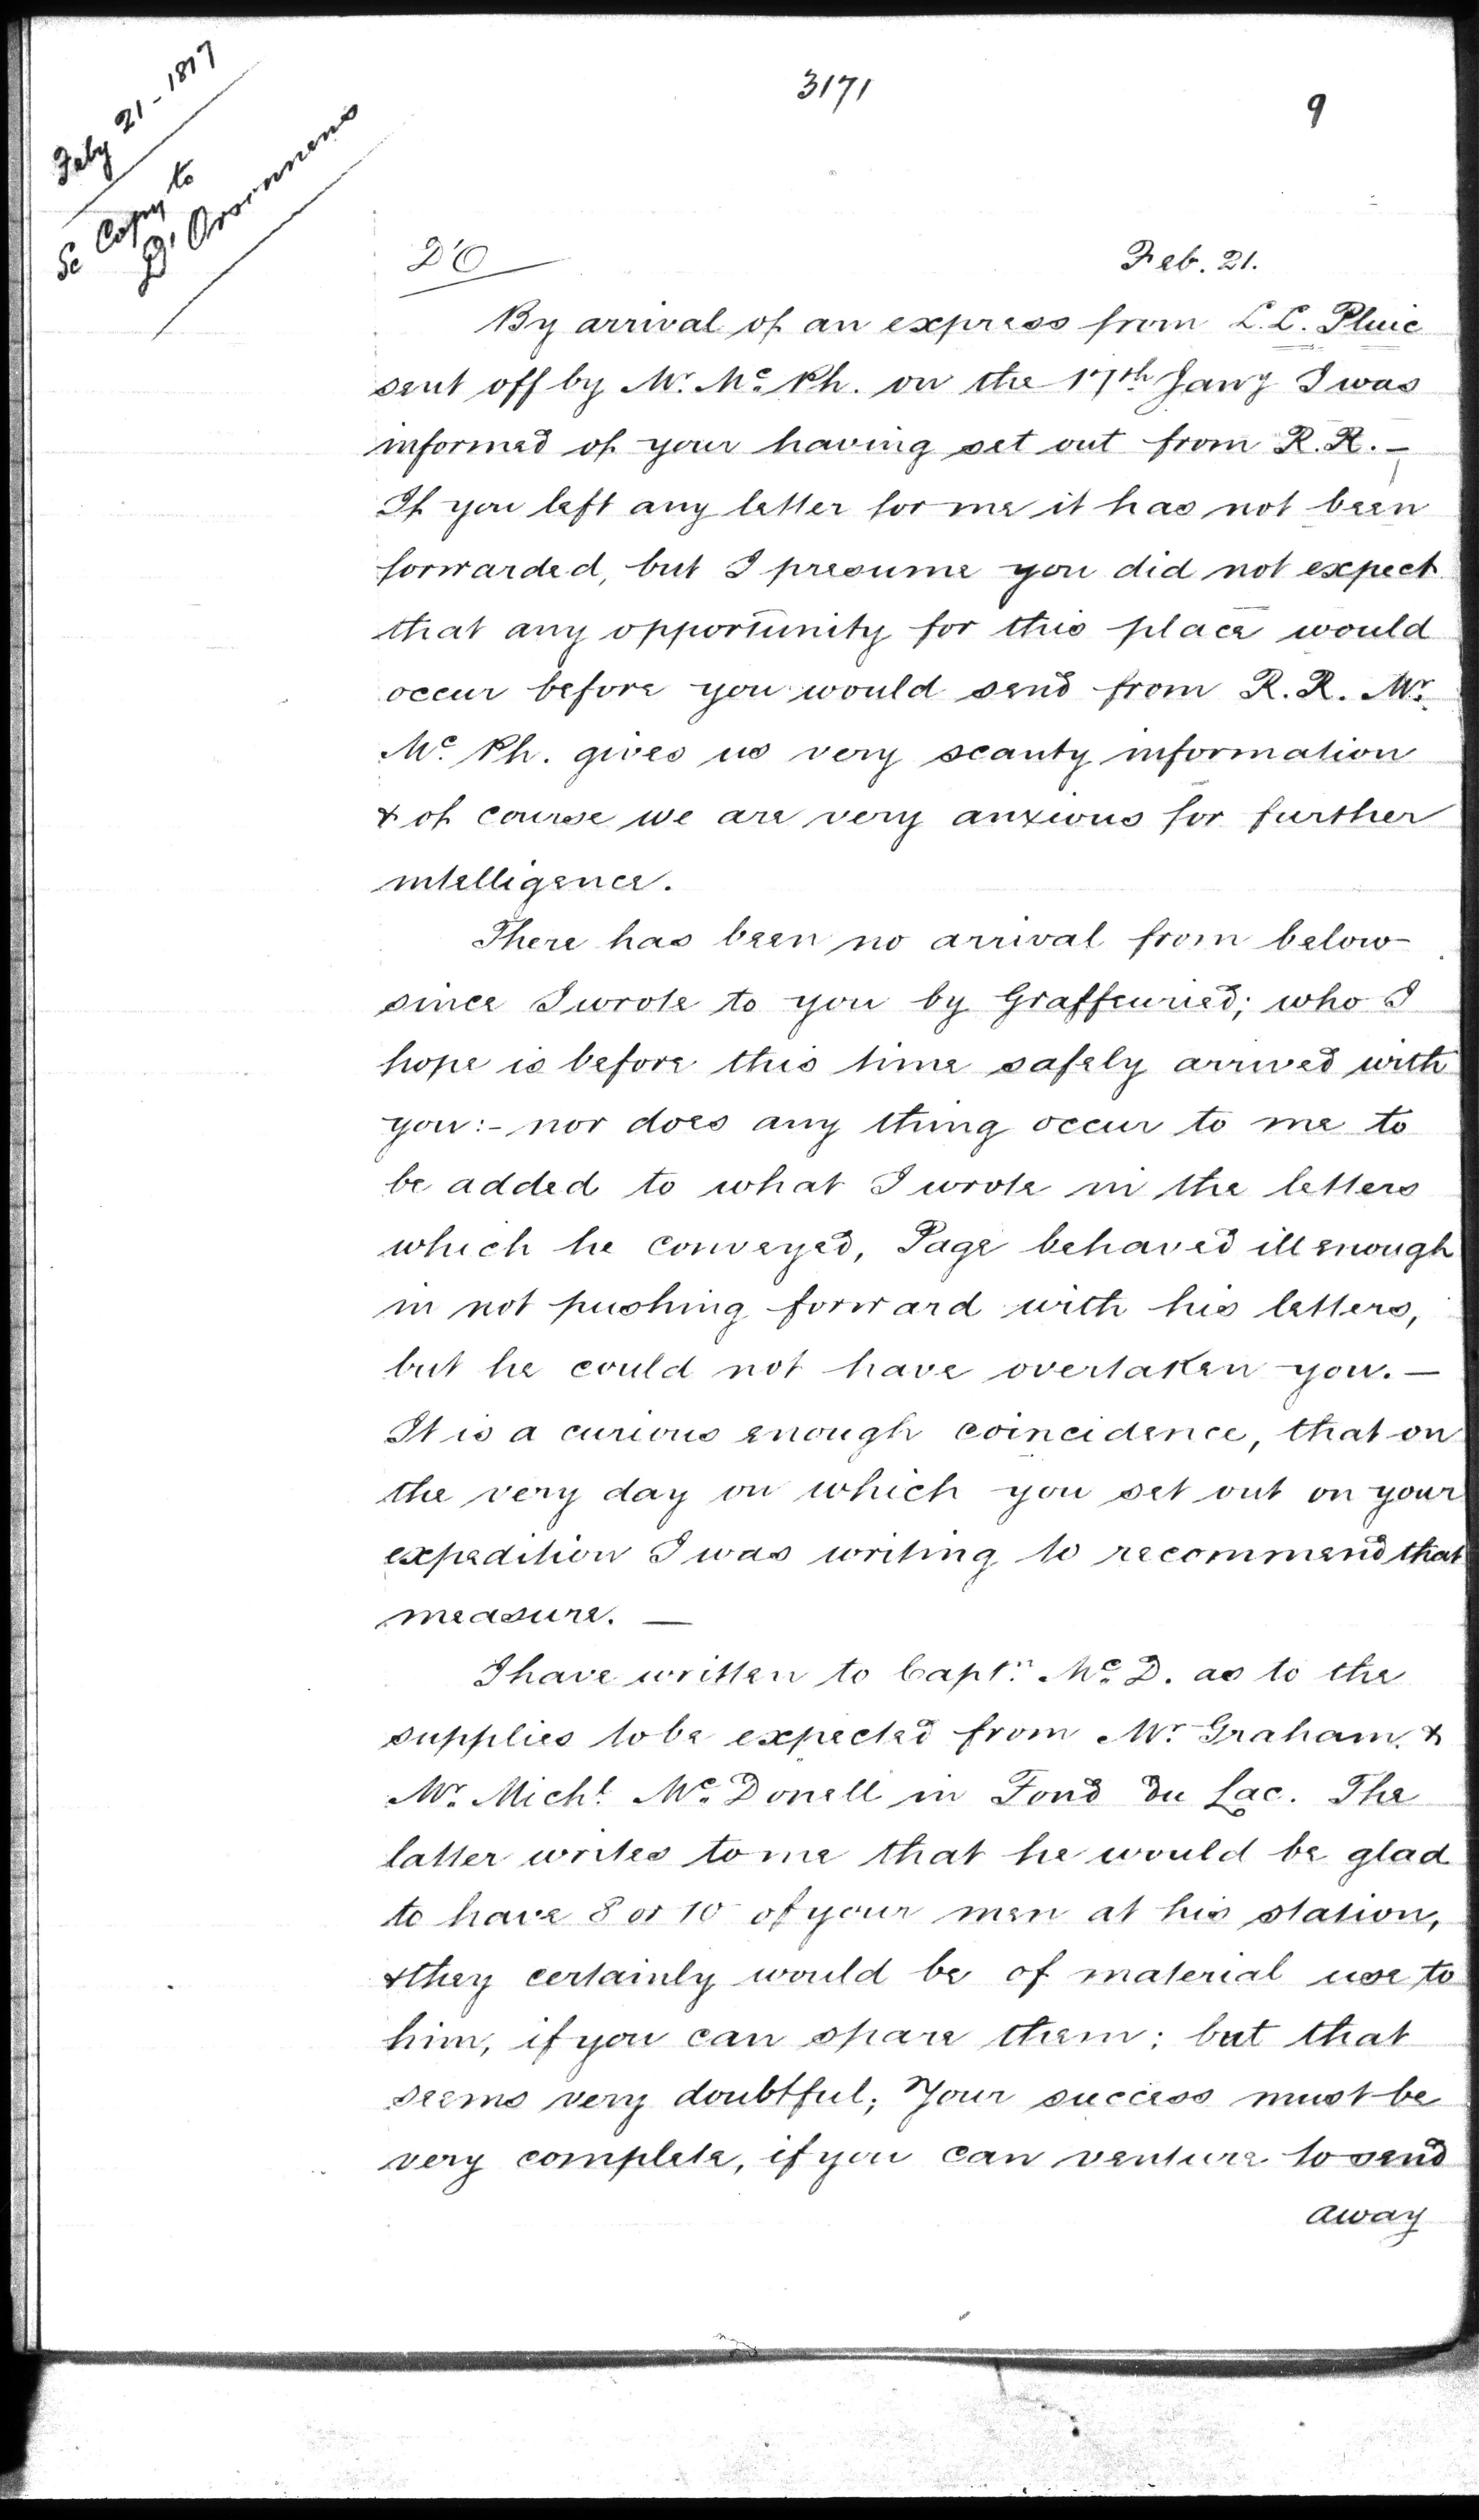 3171
9
Feby 21-1817
Se Copy to
D'Orsonnens
D'O
Feb. 21.
By arrival of an express from L.L. Pluie
sent off by Mr. Mc. Ph. on the 17th Jany I was
informed of your having set out from R.R. —
If you left any letter for me it has not been
forwarded, but I presume you did not expect
that any opportunity for this place would
occur before you would send from R.R. Mr.
Mc. Ph. gives us very scanty information
& of course we are very anxious for further
intelligence.
There has been no arrival from below
since I wrote to you by Graffenried; who I
hope is before this time safely arrived with
you:- nor does any thing occur to me to
be added to what I wrote in the letters
which he conveyed, Page behaved ill enough
in not pushing forward with his letters,
but he could not have overtaken you. —
It is a curious enough coincidence, that on
the very day on which you set out on your
expedition I was writing to recommend that
measure. —
I have written to Captn. Mc. D. as to the
supplies to be expected from Mr. Graham. &
Mr. Michl. Mc. Donell in Fond du Lac. The
latter writes to me that he would be glad
to have 8 or 10 of your men at his station,
& they certainly would be of material use to
him, if you can spare them; but that
seems very doubtful; Your success must be
very complete, if you can venture to send
away